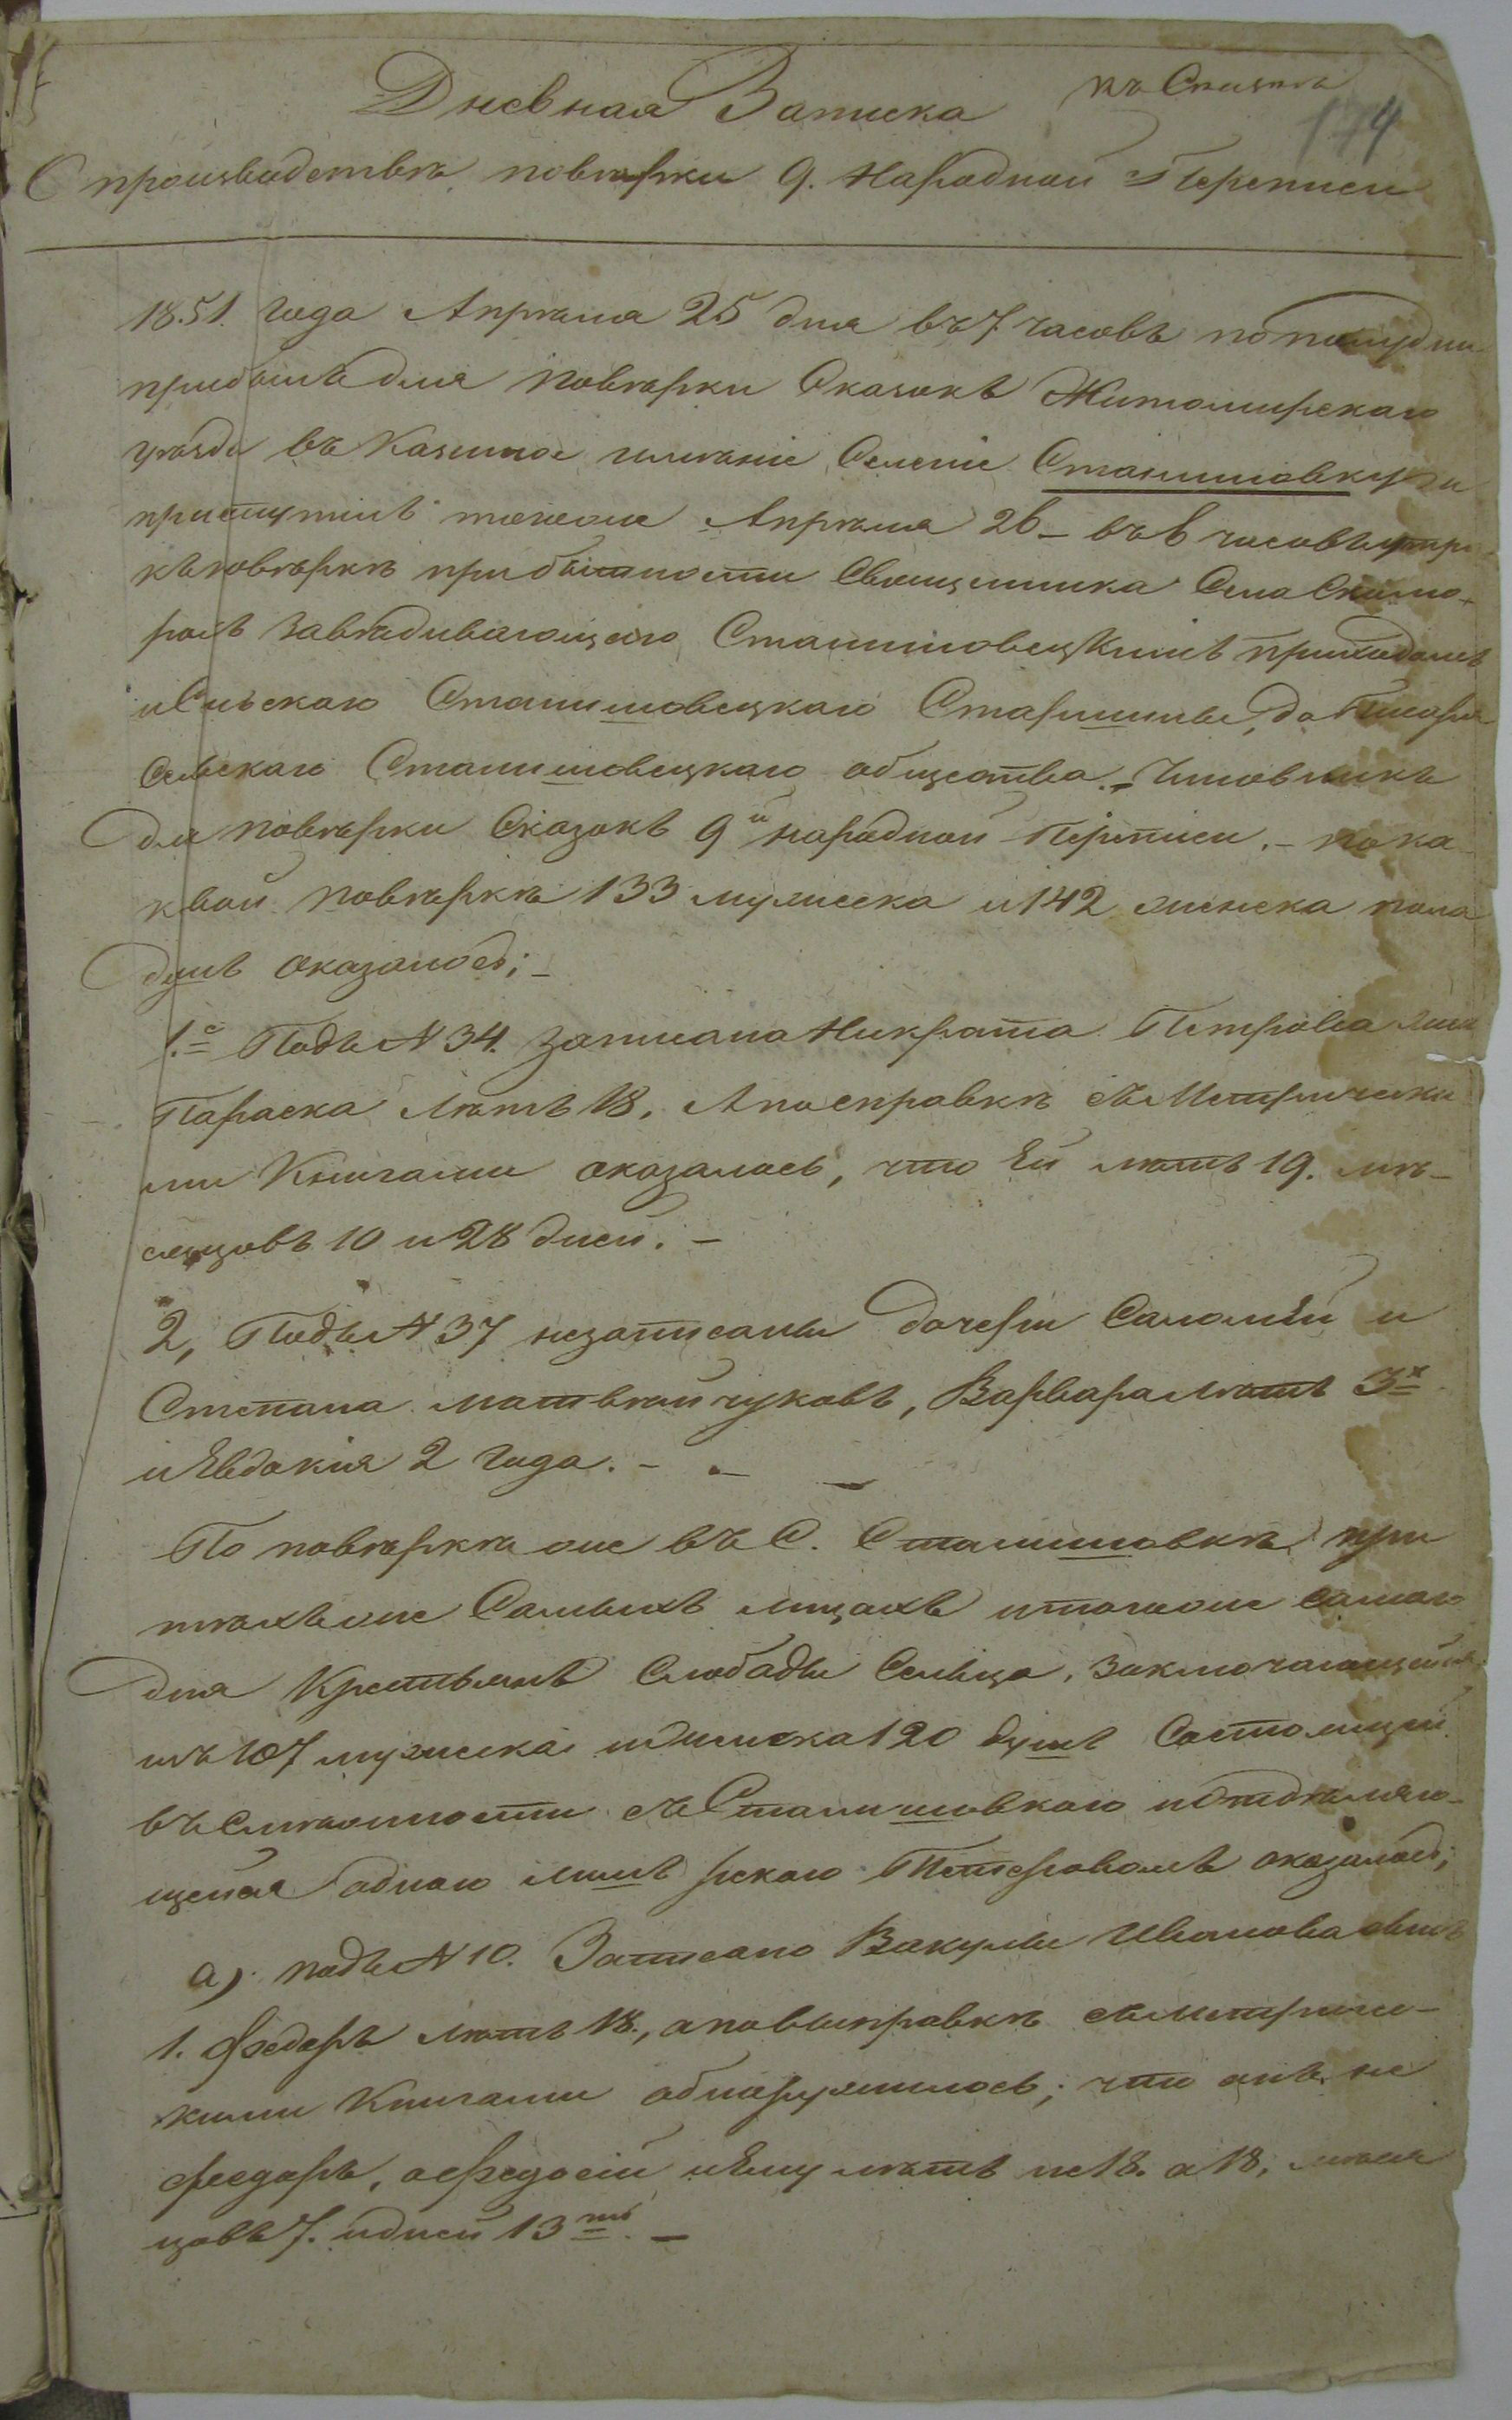 Дневная Записка
174
О производствѣ повѣрки 9. Народной Переписи
18.51. года Апрѣля 25 дня въ 7 часовъ по полудни
прибылъ для повѣрки Сказокъ Житомирскаго
уѣзда въ Казенное имѣніе Селеніе Станишовку и
приступилъ тогоже Апрѣля 26 - въ 6 часовъ утра
къ повѣркѣ при бытности Священника Села Скомо-
рохъ завѣдивающаго Станишовецкимъ приходомъ
и Сельскаго Станишовецкаго Старшины, да Писаря
Сельскаго Станишовецкаго общества. - Чиновникъ
для повѣрки Сказокъ 9й народной Переписи. - по ка-
ковой повѣркѣ 133 мужеска и 142 женска пола
душъ оказалось; -
1.е Подъ N 34. записана Петрова
Параска лѣтъ 18. А по справкѣ съ Метрически
ми Книгами оказалось, что Ей лѣтъ 19. мѣ-
сяцовъ 10 и 28 дней. -
2, Подъ N 37 незаписаны дочери Саломѣи и
Степана Матвѣйчуковъ, Варвара лѣтъ 3х
и Евдокія 2 года. - - -
По повѣркѣ же въ С. Станишовкѣ при
тѣхъ же Самыхъ лицахъ и тогоже самаго
дня Крестьянъ Слободы Сельца, заключающейся
изъ 107 мужеска и женска 120 душъ Состоящей
въ Смѣжности съ Станишовкою и отдѣляю-
щейся одною лишъ рекою Тетеровомъ оказалось;
а) подъ N 10. Записано Вакулы Иванова сынъ
1. Федоръ лѣтъ 18., а по выправкѣ съ Метричес-
кими Книгами обнаружилось; что онъ не
Федоръ, а Федосій и Ему лѣтъ не 18. а 18, мѣся
цовъ 7. и дней 13ть. -